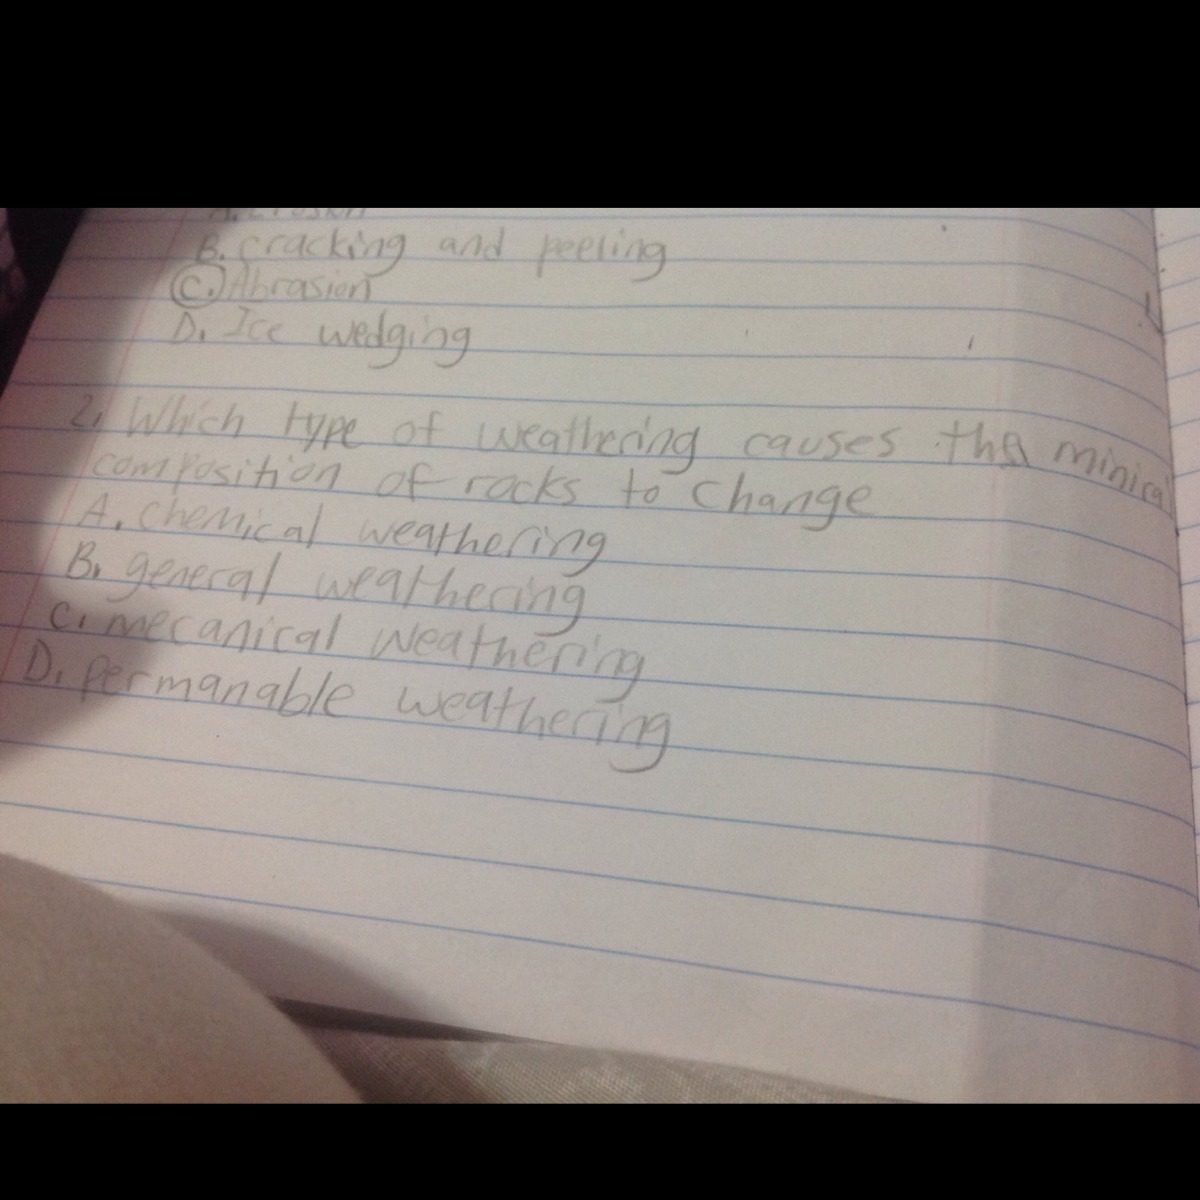 B. cracking and peeling
C. Abrasion
D. Ice wedging
2. Which type of weathering causes the minical
composition of rocks to change
A. chemical weathering
B. general weathering
C. mecanical weathering
D. permanable weathering